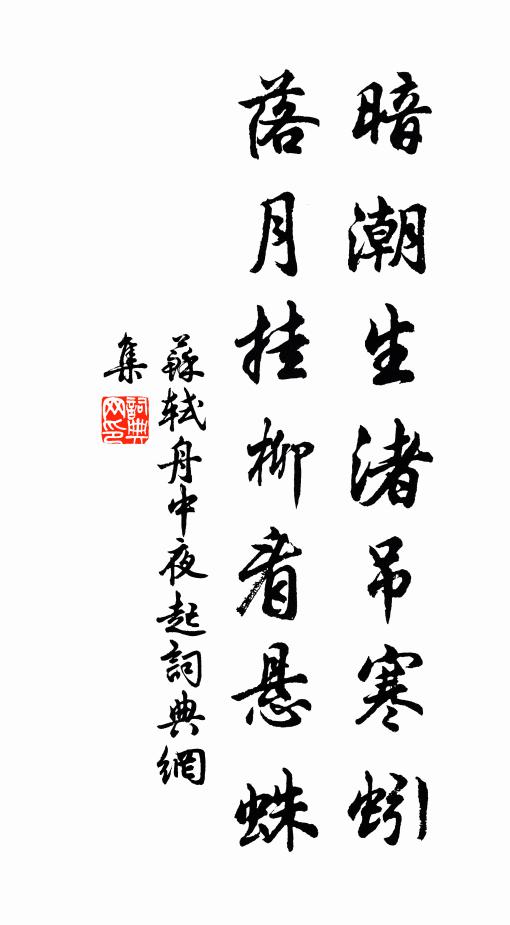 暗潮生渚吊寒蚓
落月挂柳看悬蛛
蘇軾舟中夜起詞典網
集
詞典
网印